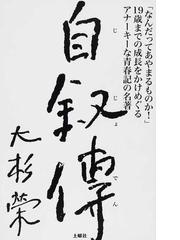 「なんだってあやまるものか！」
19歳までの成長をかけめぐる
アナーキーな青春記の名著
自叙傳
じじょでん
大杉榮
土曜社